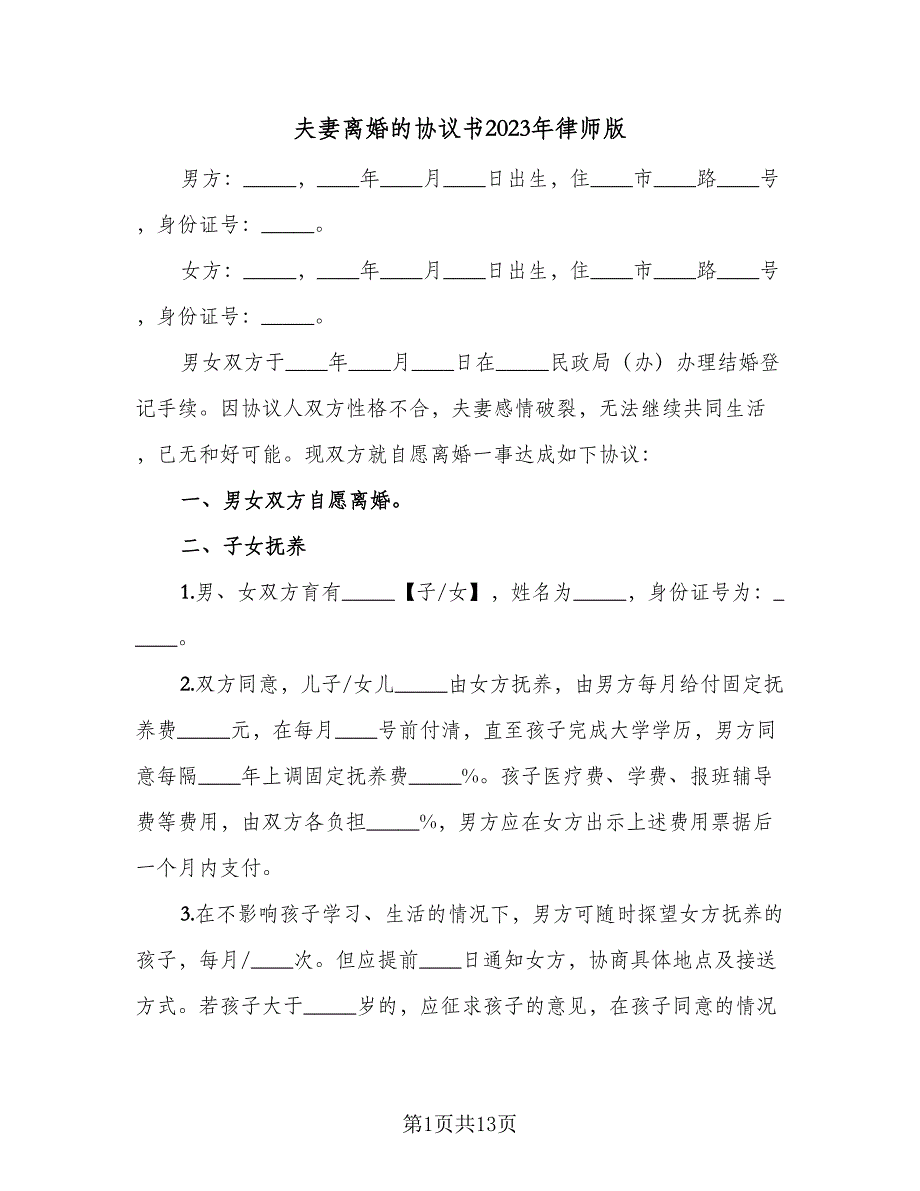 夫妻离婚的协议书2023年律师版
男方：_____，____年____月____日出生，住____市____路____号
，身份证号：_____。
女方：_____，____年____月____日出生，住____市____路____号
，身份证号：_____。
男女双方于____年____月____日在_____民政局（办）办理结婚登
记手续。因协议人双方性格不合，夫妻感情破裂，无法继续共同生活
，已无和好可能。现双方就自愿离婚一事达成如下协议：
一、男女双方自愿离婚。
二、子女抚养
1.男、女双方育有_____【子/女】，姓名为_____，身份证号为：_
____。
2.双方同意，儿子/女儿_____由女方抚养，由男方每月给付固定抚
养费_____元，在每月____号前付清，直至孩子完成大学学历，男方同
意每隔____年上调固定抚养费_____%。孩子医疗费、学费、报班辅导
费等费用，由双方各负担_____%，男方应在女方出示上述费用票据后
一个月内支付。
3.在不影响孩子学习、生活的情况下，男方可随时探望女方抚养的
孩子，每月/____次。但应提前____日通知女方，协商具体地点及接送
方式。若孩子大于_____岁的，应征求孩子的意见，在孩子同意的情况
第1页共13页